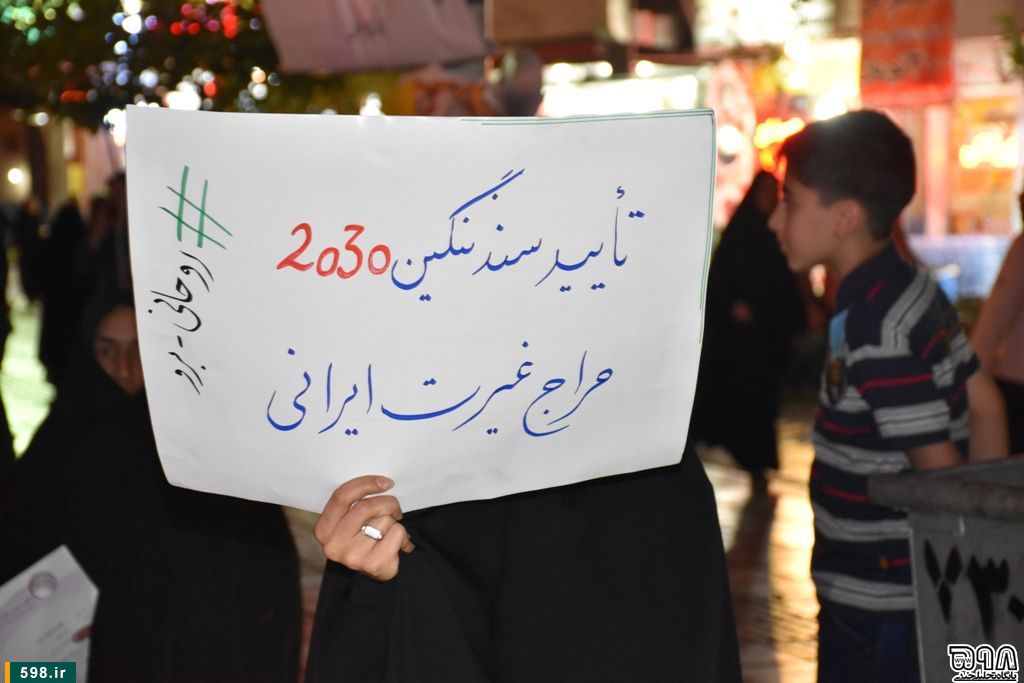 تأیید سند ننگین 2030
حراجِ غیرت ایرانی
# روحانی - برو
598.ir